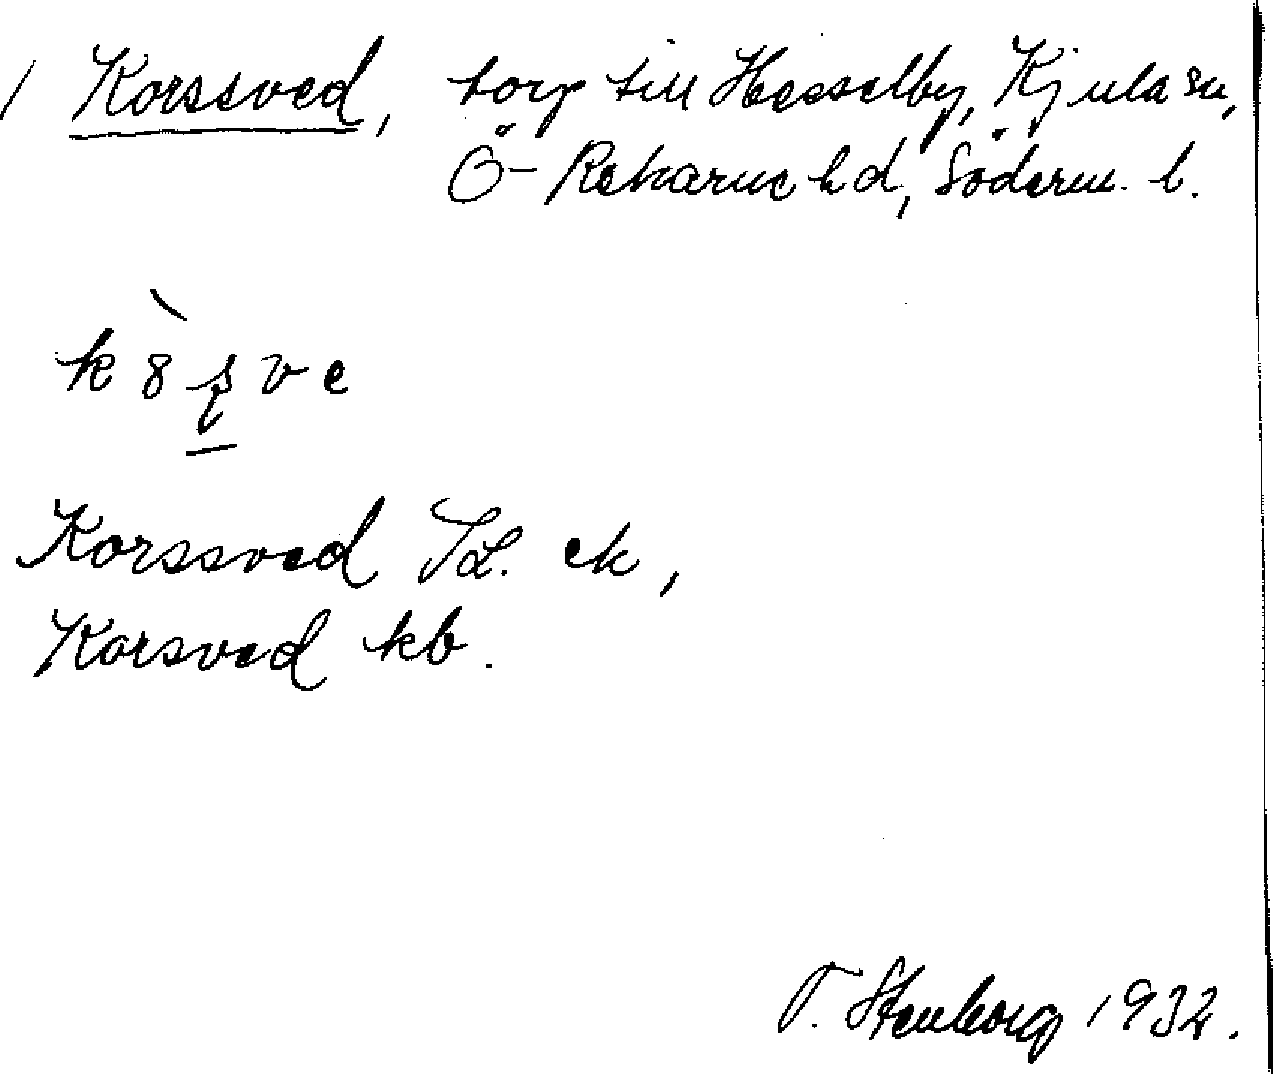 / Korssved, torp till Hesselby, Kjula sn,
Ö-Rekarne hd, Söderm. l.
k 8̀ ʂ v e
Korssved Td. ek,
Korsved kb.
T. Stenborg 1932.